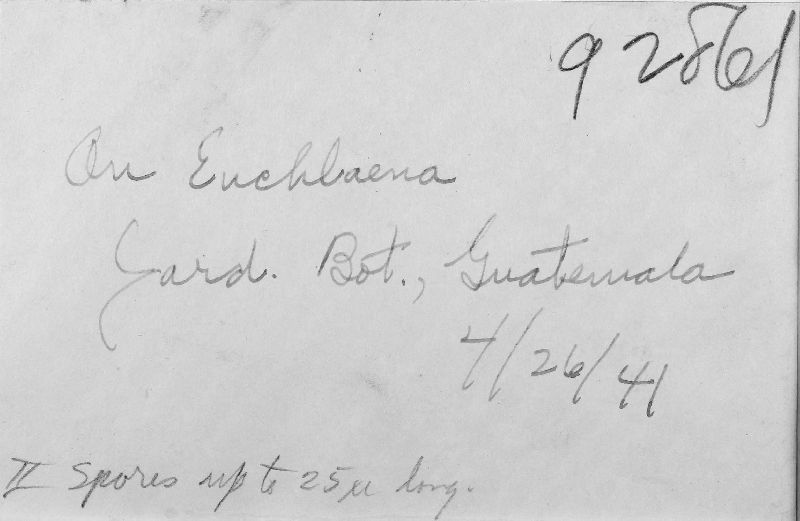 92861
On Euchlaena
Jard. Bot., Guatemala
4/26/41
II Spores up to 25 µ long.